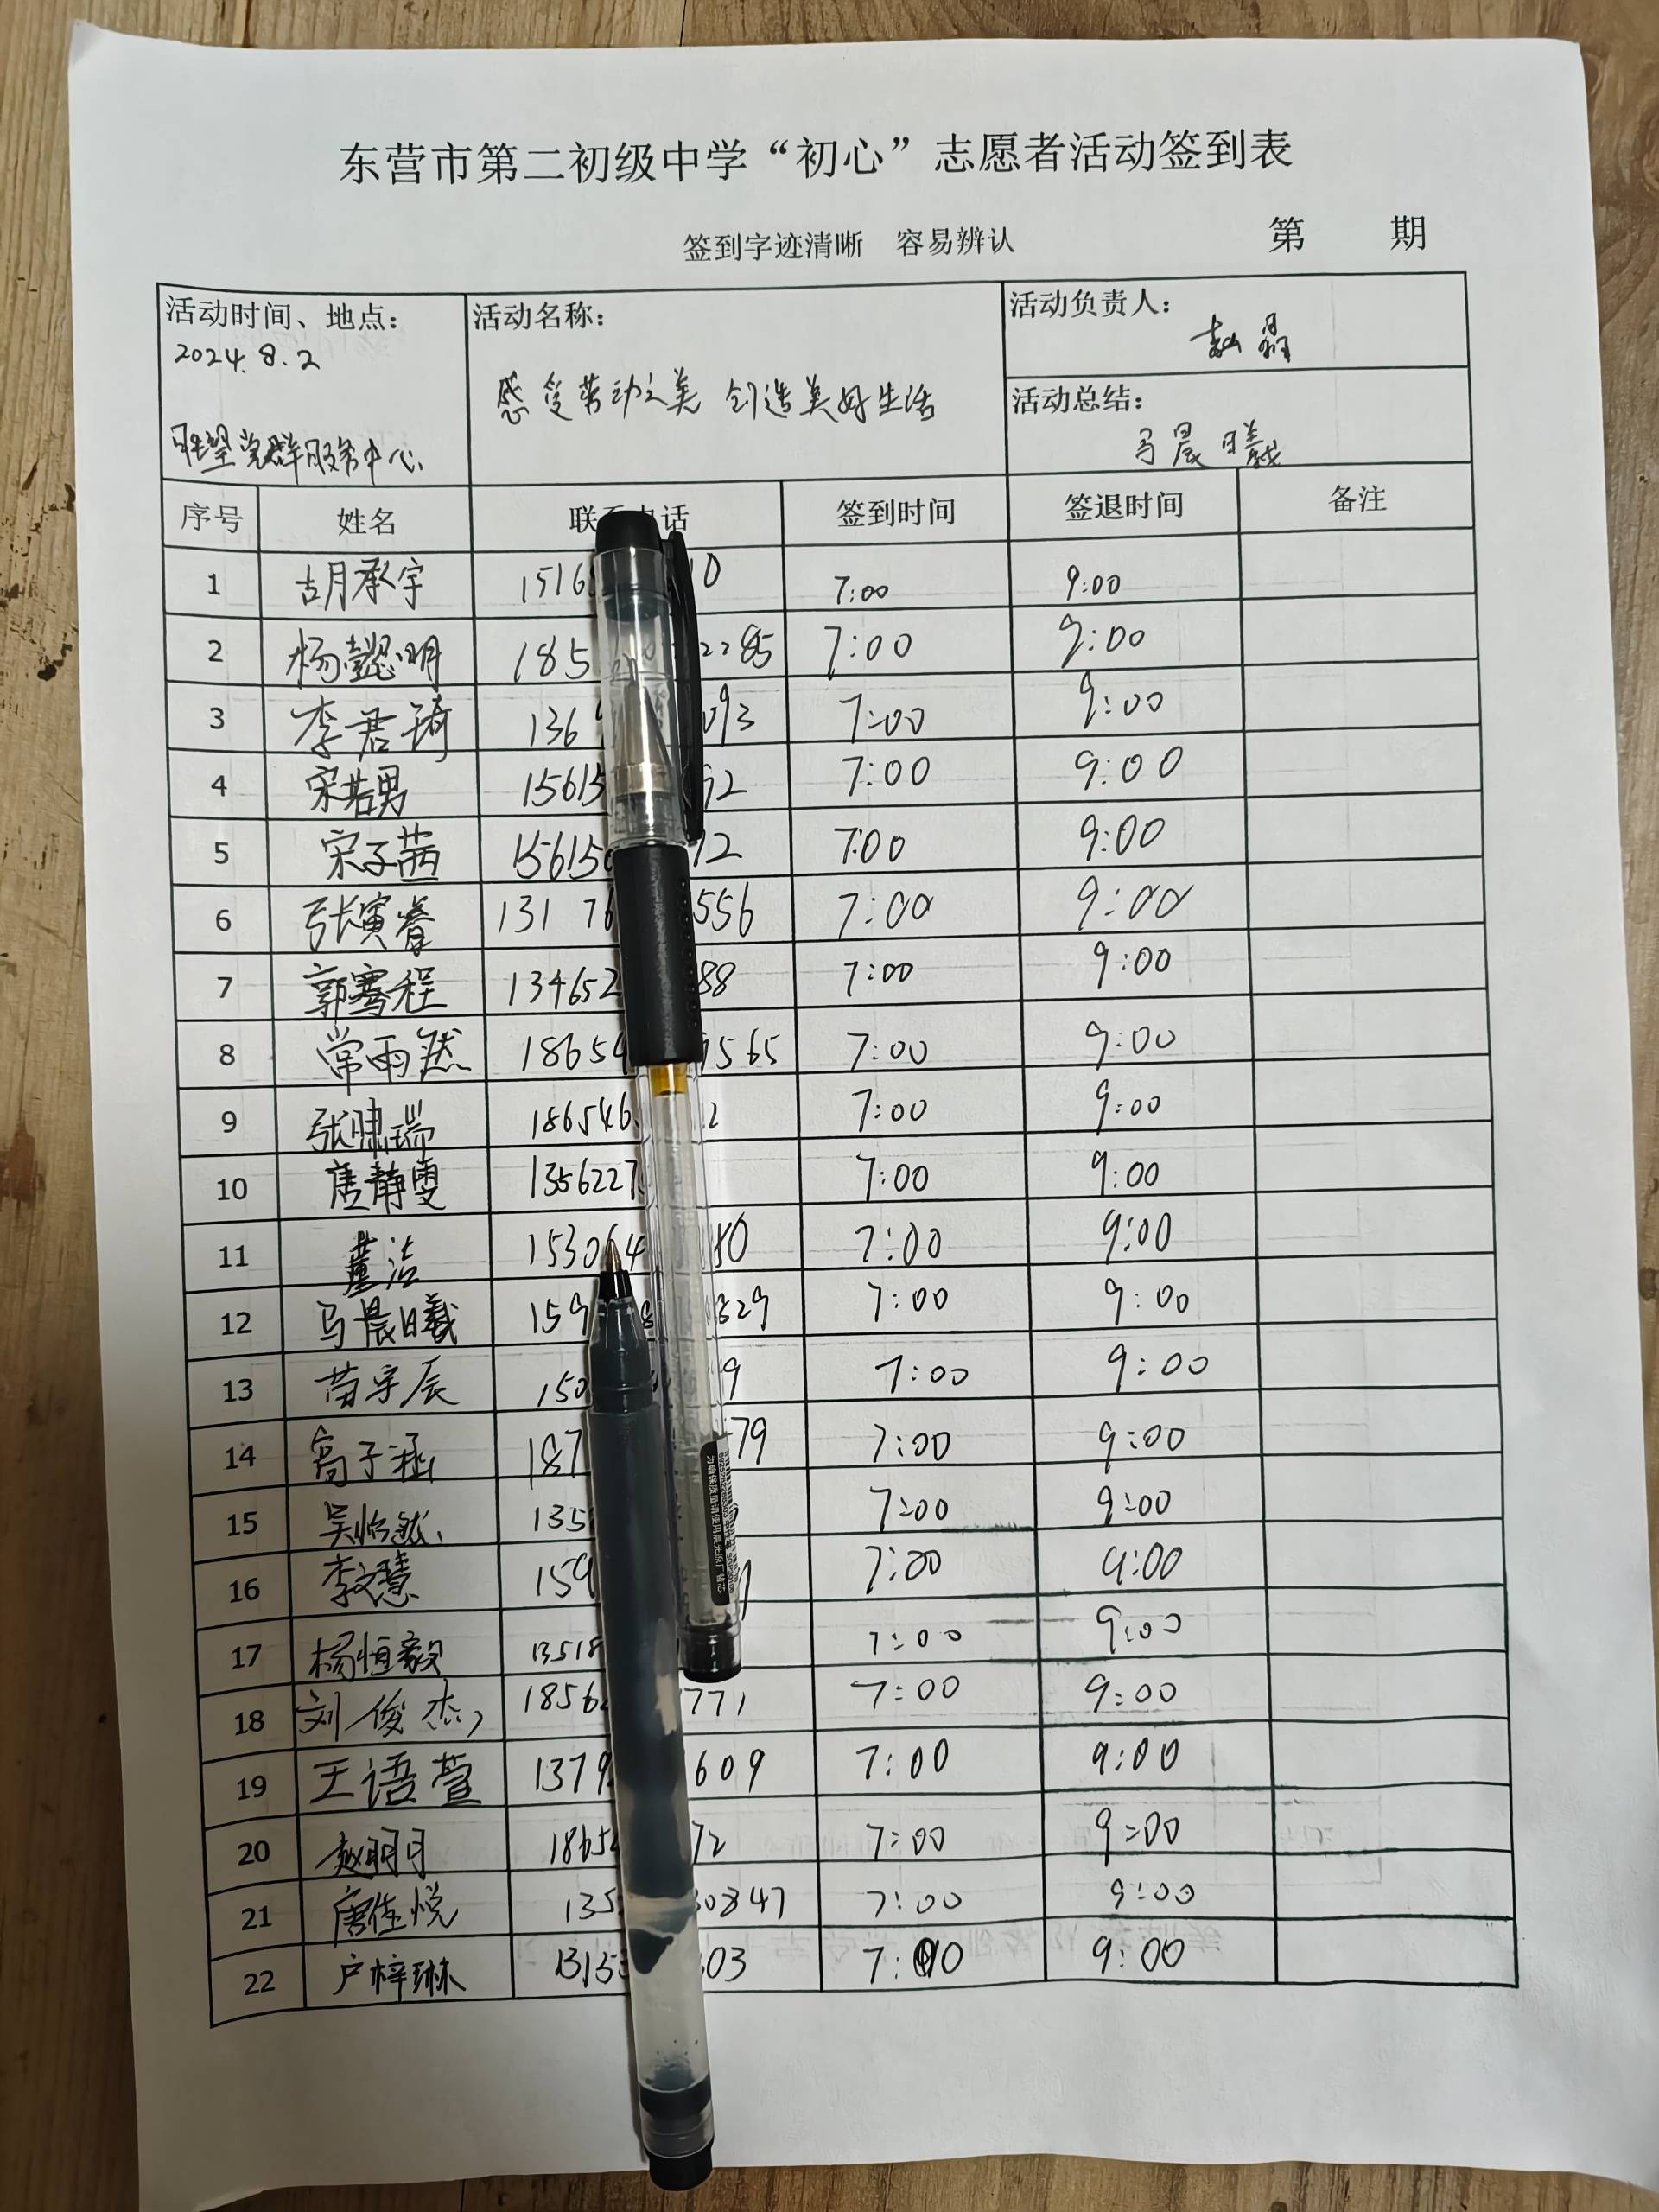 东营市第二初级中学“初心”志愿者活动签到表
签到字迹清晰 容易辨认 第 期
活动时间、地点:
2024.8.2
胜望党群服务中心
活动名称:
感受劳动之美 创造美好生活
活动负责人:
赵
活动总结:
马晨曦
序号 姓名 联 话 签到时间 签退时间 备注
1 胡承宇 1516 10 7:00 9:00
2 杨懿明 185 2285 7:00 9:00
3 李君琦 136 093 7:00 9:00
4 宋若男 15615 92 7:00 9:00
5 宋子茜 15615 92 7:00 9:00
6 张寅睿 131 76 556 7:00 9:00
7 郭骞程 134652 88 7:00 9:00
8 常雨然 18654 1565 7:00 9:00
9 张啸瑞 186546 2 7:00 9:00
10 唐静雯 1356227 7:00 9:00
11 董洁 153064 80 7:00 9:00
12 马晨曦 159 329 7:00 9:00
13 苗宇辰 150 9 7:00 9:00
14 高子涵 187 79 7:00 9:00
15 吴怡然 135 7:00 9:00
16 李文慧 159 7:00 9:00
17 杨恒毅 13518 7:00 9:00
18 刘俊杰 1856 771 7:00 9:00
19 王语萱 1379 609 7:00 9:00
20 赵明月 1865 72 7:00 9:00
21 唐佳悦 135 30847 7:00 9:00
22 卢梓琳 13153 03 7:00 9:00
力确保质量请使用晨光原厂替芯